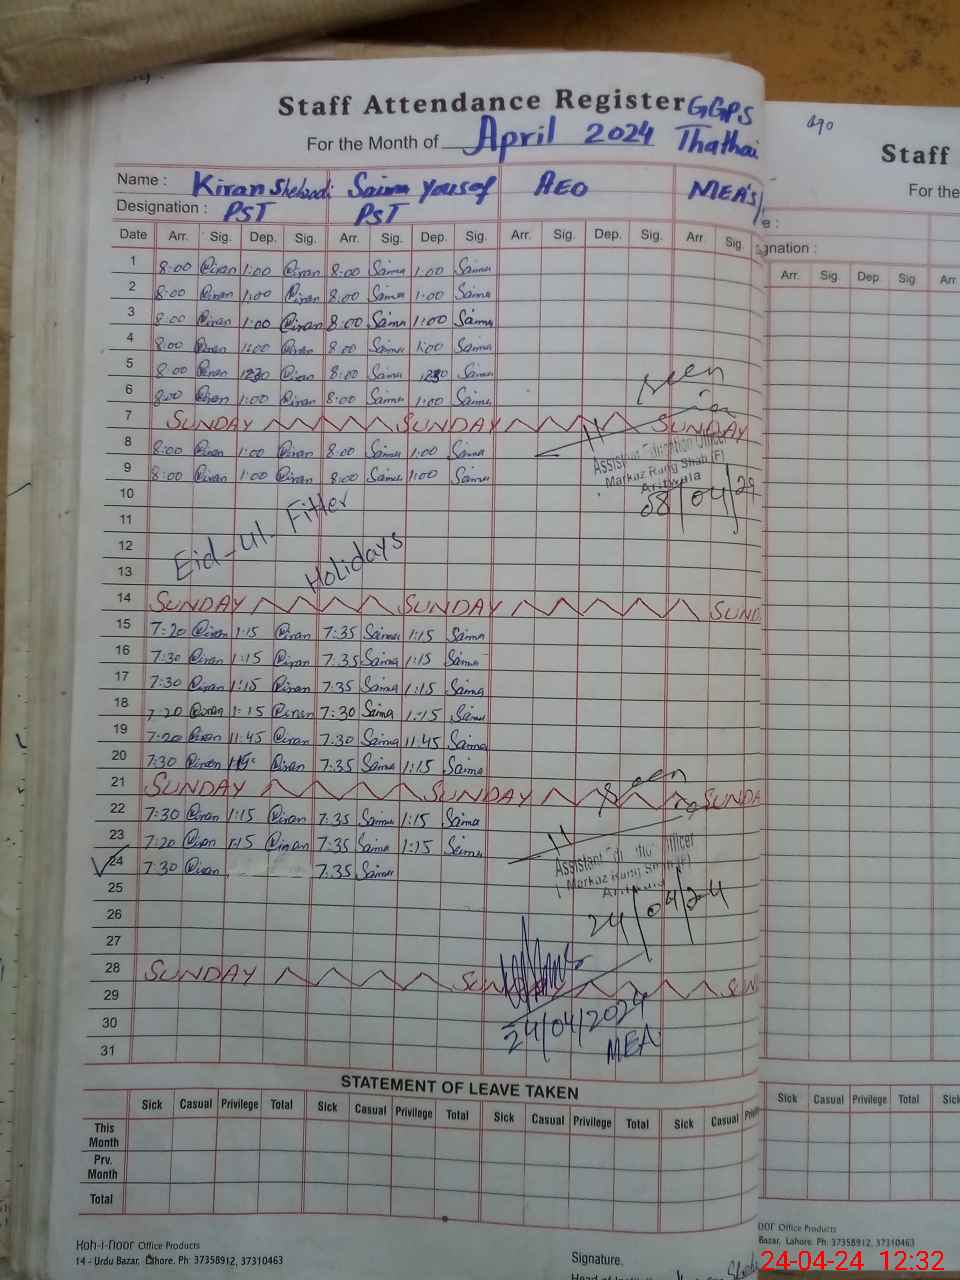 Staff Attendance Register GGPS
For the Month of April 2024 Thathai
Name : Kiran Shehzadi Saima Yousaf AEO MEA's
Designation : PST PST
Date Arr. Sig. Dep. Sig. Arr. Sig. Dep. Sig. Arr. Sig. Dep. Sig. Arr. Sig.
1 8:00 Kiran 1:00 Kiran 8:00 Saima 1:00 Saima
2 8:00 Kiran 1:00 Kiran 8:00 Saima 1:00 Saima
3 8:00 Kiran 1:00 Kiran 8:00 Saima 1:00 Saima
4 8:00 Kiran 1:00 Kiran 8:00 Saima 1:00 Saima
5 8:00 Kiran 12:30 Kiran 8:00 Saima 12:30 Saima
6 8:00 Kiran 1:00 Kiran 8:00 Saima 1:00 Saima
seen
7 SUNDAY SUNDAY SUNDAY
8 8:00 Kiran 1:00 Kiran 8:00 Saima 1:00 Saima
9 8:00 Kiran 1:00 Kiran 8:00 Saima 1:00 Saima
Assistant Education Officer
Markaz Rung Shah (F)
Arifwala
08/04/24
10
11
12
13
Eid-ul-Fitter
Holidays
14 SUNDAY SUNDAY SUND
15 7:20 Kiran 1:15 Kiran 7:35 Saima 1:15 Saima
16 7:30 Kiran 1:15 Kiran 7:35 Saima 1:15 Saima
17 7:30 Kiran 1:15 Kiran 7:35 Saima 1:15 Saima
18 7:20 Kiran 1:15 Kiran 7:30 Saima 1:15 Saima
19 7:20 Kiran 11:45 Kiran 7:30 Saima 11:45 Saima
20 7:30 Kiran 1:15 Kiran 7:35 Saima 1:15 Saima
seen
21 SUNDAY SUNDAY SUNDA
22 7:30 Kiran 1:15 Kiran 7:35 Saima 1:15 Saima
23 7:20 Kiran 1:15 Kiran 7:35 Saima 1:15 Saima
24 7:30 Kiran 7:35 Saima
Assistant Education Officer
Markaz Rung Shah (F)
Arifwala
24/04/24
25
26
27
28 SUNDAY SUNDAY SUN
29
30
31
24/04/2024
MEA
STATEMENT OF LEAVE TAKEN
Sick Casual Privilege Total Sick Casual Privilege Total Sick Casual Privilege Total Sick Casual
This Month
Prv. Month
Total
Koh-i-noor Office Products
14 - Urdu Bazar, Lahore. Ph: 37358912, 37310463
Signature.
Staff
For the
Arr. Sig. Dep. Sig. Arr
Sick Casual Privilege Total Sick
Office Products
Bazar, Lahore. Ph: 37358912, 37310463
24-04-24 12:32